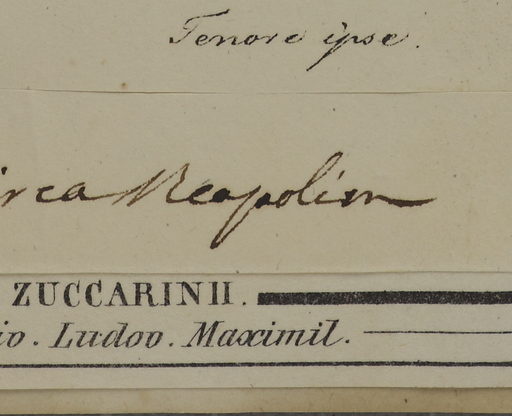 Tenore ipse.
irca Neapolim
ZUCCARINII.
io. Ludov. Maximil.